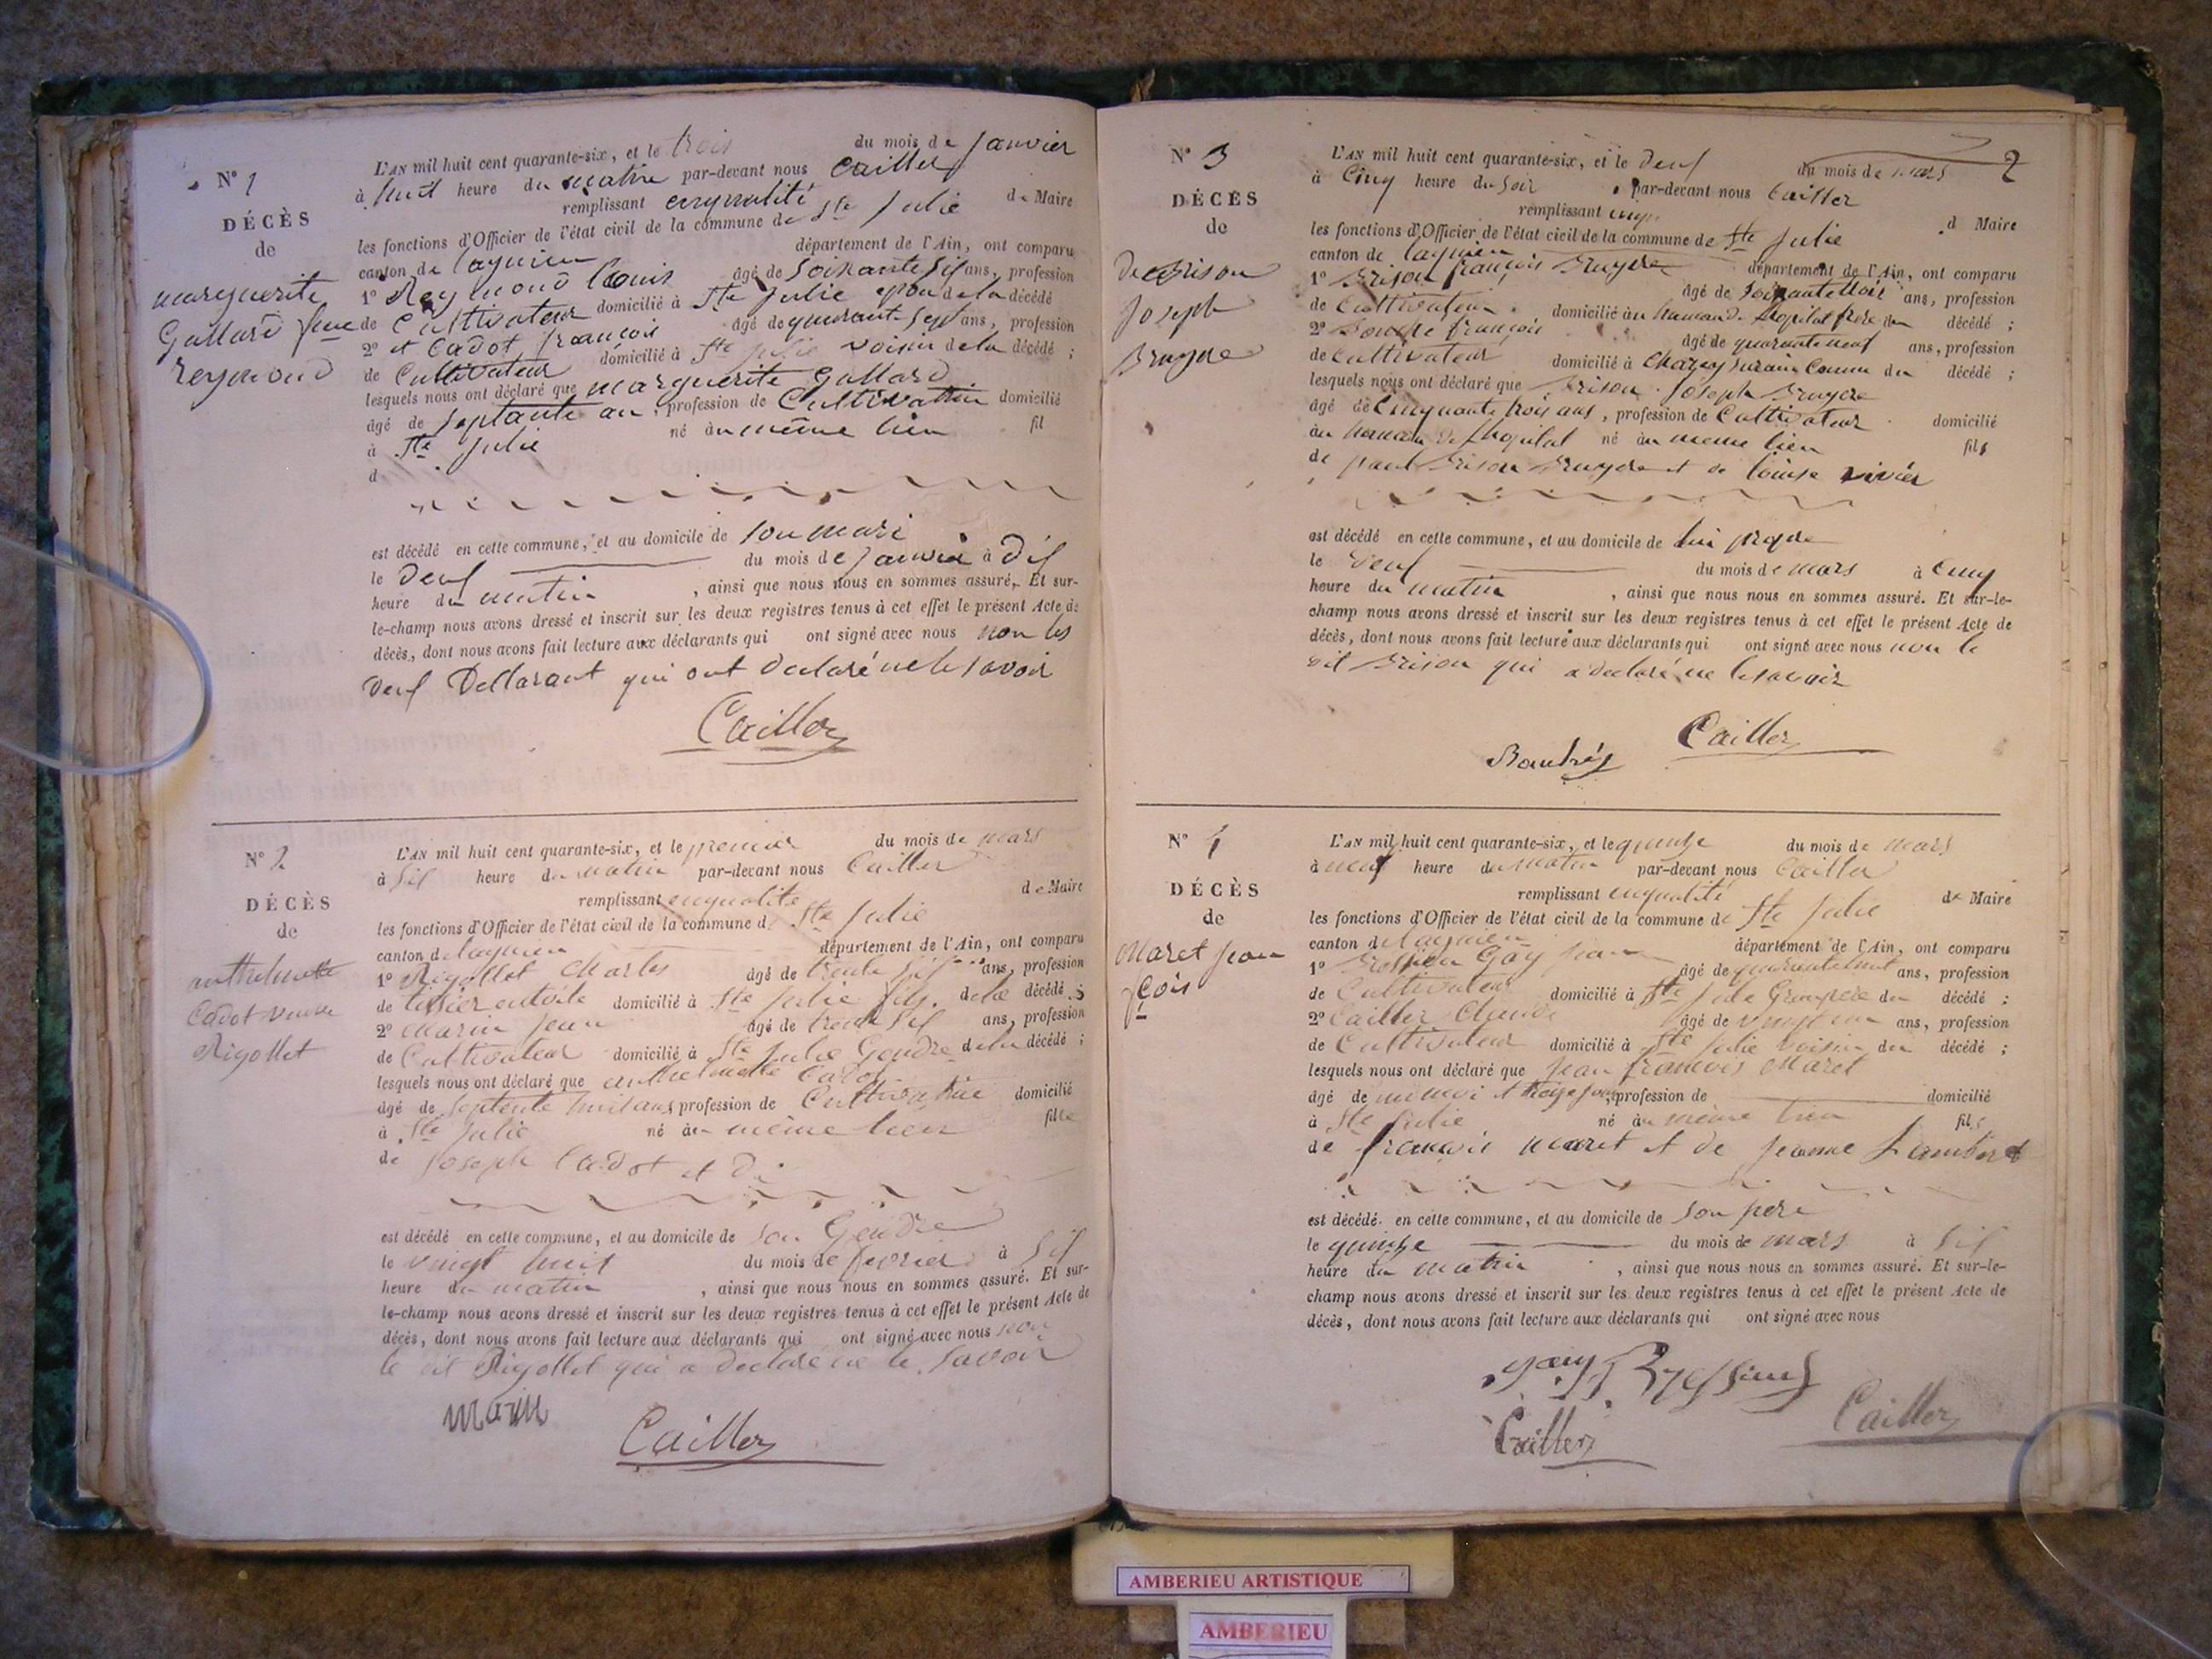 N° 1
DÉCÈS
de
marguerite
Gallard fme
reymond
L'AN mil huit cent quarante-six, et le trois du mois de janvier
à huit heure du matin par-devant nous Cailler
remplissant enqualité de Maire
les fonctions d'Officier de l'état civil de la commune de Ste Julie
canton de lagnieu département de l'Ain, ont comparu
1° Reymond louis âgé de Soixante Sif ans, profession
de Cultivateur domicilié à Ste Julie epou de la décédé
2° et Cadot françois âgé de quarante Sept ans, profession
de Cultivateur domicilié à Ste Julie voisin de la décédé ;
lesquels nous ont déclaré que marguerite Gallard
âgé de Septante an, profession de Cultivatrice domicilié
à Ste Julie né au même lieu fil
d
est décédé en cette commune, et au domicile de son mari
le deuf du mois de janvier à dif
heure du matin, ainsi que nous nous en sommes assuré. Et sur-
le-champ nous avons dressé et inscrit sur les deux registres tenus à cet effet le présent Acte de
décès, dont nous avons fait lecture aux déclarants qui ont signé avec nous non les
deuf Dellarant qui ont declaré ne le savoir
Cailler
N° 2
DÉCÈS
de
anthelmette
Cadot veuve
Rigollet
L'AN mil huit cent quarante-six, et le premier du mois de mars
à Sif heure du matin par-devant nous Cailler
remplissant enqualité de Maire
les fonctions d'Officier de l'état civil de la commune d Ste Julie
canton de lagnieu département de l'Ain, ont comparu
1° Rigollet Charles âgé de trente Sif ans, profession
de tissier entoile domicilié à Ste Julie fils de la décédé ;
2° Marin jean âgé de trente Sif ans, profession
de Cultivateur domicilié à Ste Julie Gendre de la décédé ;
lesquels nous ont déclaré que anthelmette Cadot
âgé de Septente huit ans profession de Cultivatrice domicilié
à Ste Julie né au même lieu fille
de Joseph Cadot et d
est décédé en cette commune, et au domicile de son Gendre
le vingt huit du mois de fevrier à Sif
heure du matin, ainsi que nous nous en sommes assuré. Et sur-
le-champ nous avons dressé et inscrit sur les deux registres tenus à cet effet le présent Acte de
décès, dont nous avons fait lecture aux déclarants qui ont signé avec nous non
le dit Rigollet qui a declaré ne le Savoir
Marin
Cailler
2
N° 3
DÉCÈS
de
De Brison
Joseph
Bruyere
L'AN mil huit cent quarante-six, et le deuf du mois de mars
à Cinq heure du Soir par-devant nous Cailler
remplissant d Maire
les fonctions d'Officier de l'état civil de la commune de Ste Julie
canton de lagnieu département de l'Ain, ont comparu
1° Brison françois Bruyere âgé de Soixante trois ans, profession
de Cultivateur domicilié au hamau de lhopital frère du décédé ;
2° françois âgé de quarante neuf ans, profession
de Cultivateur domicilié à du décédé ;
lesquels nous ont déclaré que Brison Joseph Bruyere
âgé de Cinquante trois ans, profession de Cultivateur domicilié
au hamau de lhopital né au meme lieu fils
de paul Brison Bruyere et de louise vivier
est décédé en cette commune, et au domicile de lui propre
le deuf du mois de mars à Cinq
heure du matin, ainsi que nous nous en sommes assuré. Et sur-le-
champ nous avons dressé et inscrit sur les deux registres tenus à cet effet le présent Acte de
décès, dont nous avons fait lecture aux déclarants qui ont signé avec nous non le
dit Brison qui a declaré ne le savoir
Cailler
N° 4
DÉCÈS
de
Maret jean
fçois
L'AN mil huit cent quarante-six, et le quinze du mois de mars
à neuf heure du matin par-devant nous Cailler
remplissant enqualité de Maire
les fonctions d'Officier de l'état civil de la commune de Ste Julie
canton de lagnieu département de l'Ain, ont comparu
1° Gay jean âgé de quarante huit ans, profession
de Cultivateur domicilié à Ste Julie du décédé ;
2° Cailler Claude âgé de vingt un ans, profession
de Cultivateur domicilié à Ste Julie voisin du décédé ;
lesquels nous ont déclaré que jean françois Maret
âgé de un moi et treize jours, profession de domicilié
à Ste Julie né au même lieu fils
de françois maret et de jeanne Lambert
est décédé en cette commune, et au domicile de son pere
le quinze du mois de mars à Sif
heure du matin, ainsi que nous nous en sommes assuré. Et sur-le-
champ nous avons dressé et inscrit sur les deux registres tenus à cet effet le présent Acte de
décès, dont nous avons fait lecture aux déclarants qui ont signé avec nous
Cailler
Cailler
AMBERIEU ARTISTIQUE
AMBERIEU